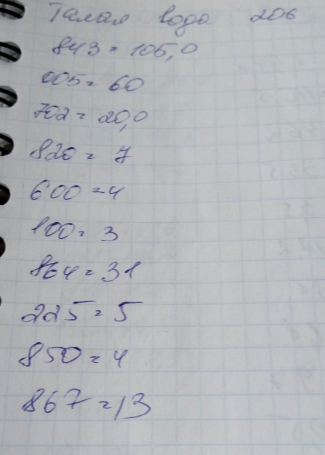 Талая вода 206
843 = 105,0
005 = 60
702 = 20,0
820 = 7
600 = 4
100 = 3
864 = 31
225 = 5
850 = 4
867 = 13